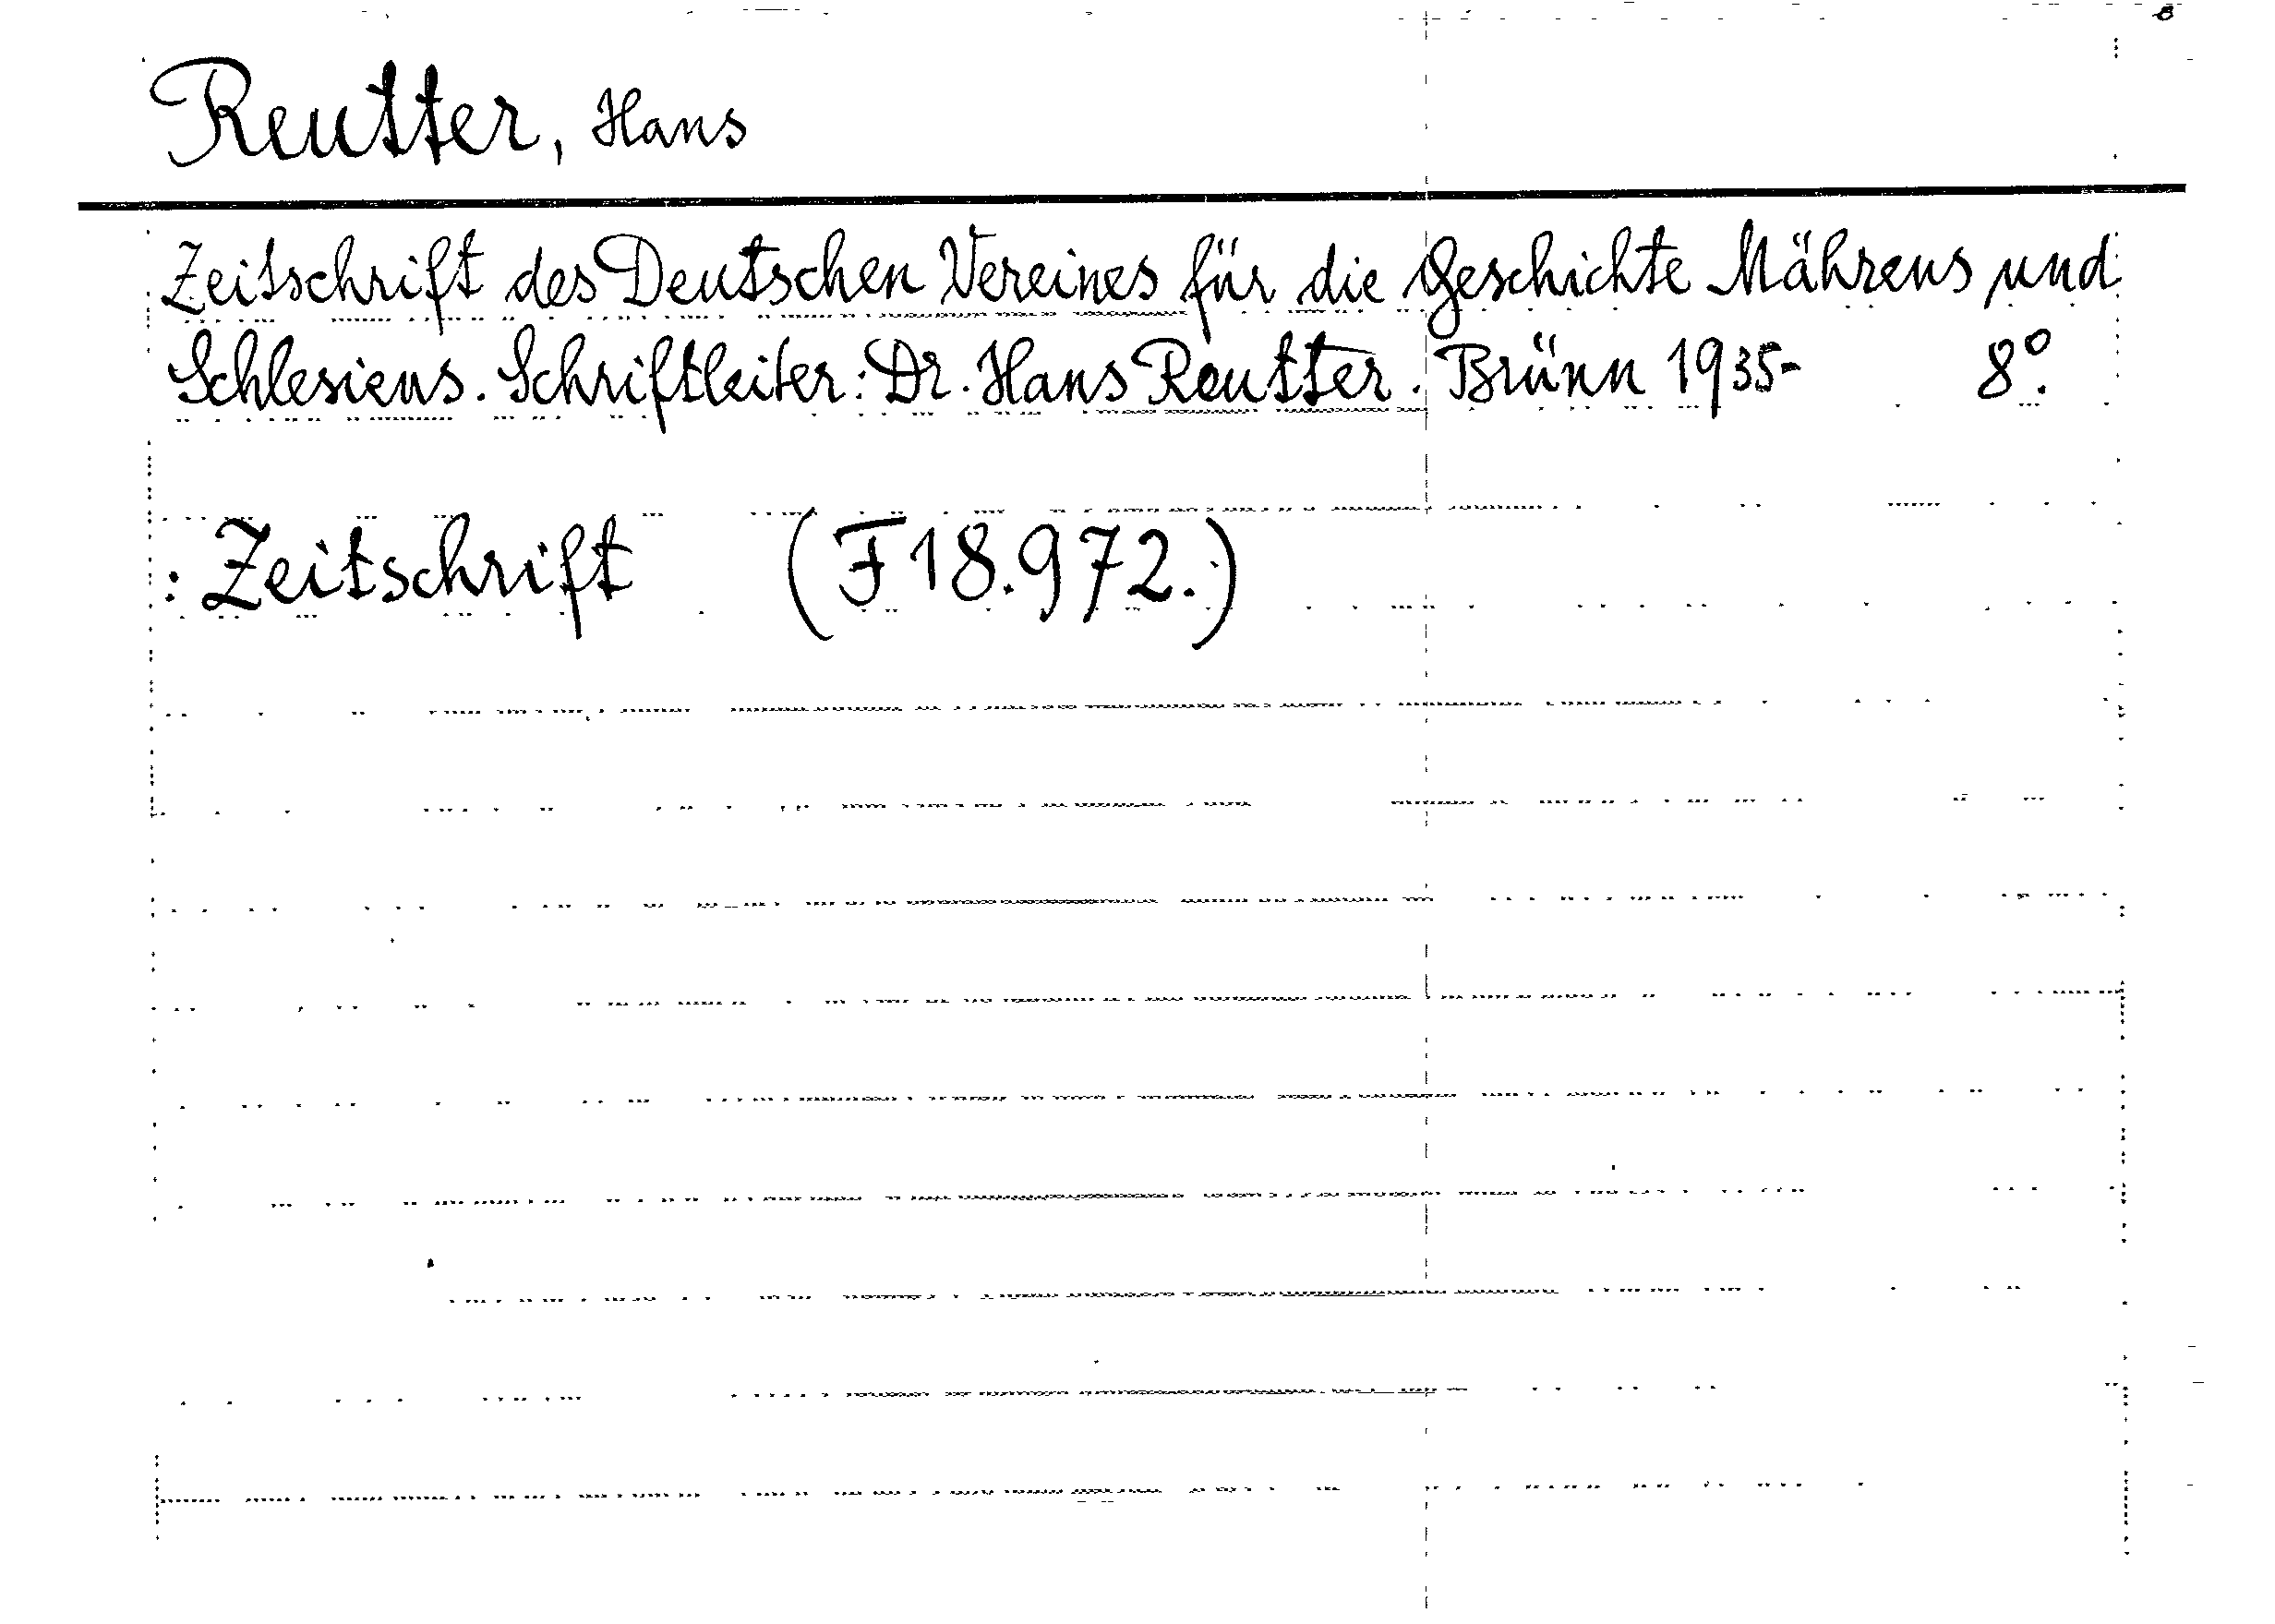 Reutter, Hans
Zeitschrift des Deutschen Vereines für die Geschichte Mährens und
Schlesiens. Schriftleiter: Dr. Hans Reutter. Brünn 1935- 8º.
: Zeitschrift (F 18.972.)